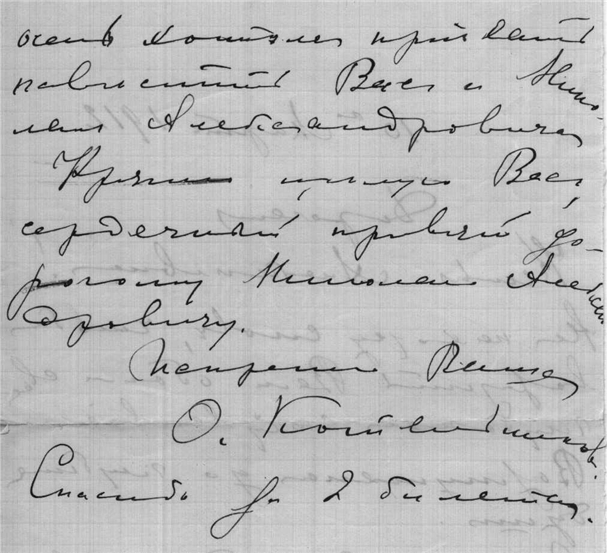 очень хотѣлъ пріѣхать
навѣстить Васъ и Нико-
лая Александровича
Крѣпко цѣлую Васъ,
сердечный привѣтъ до-
рогому Николаю Алексан
дровичу.
Искренно Ваша
О. Котельникова.
Спасибо за 2 билета.